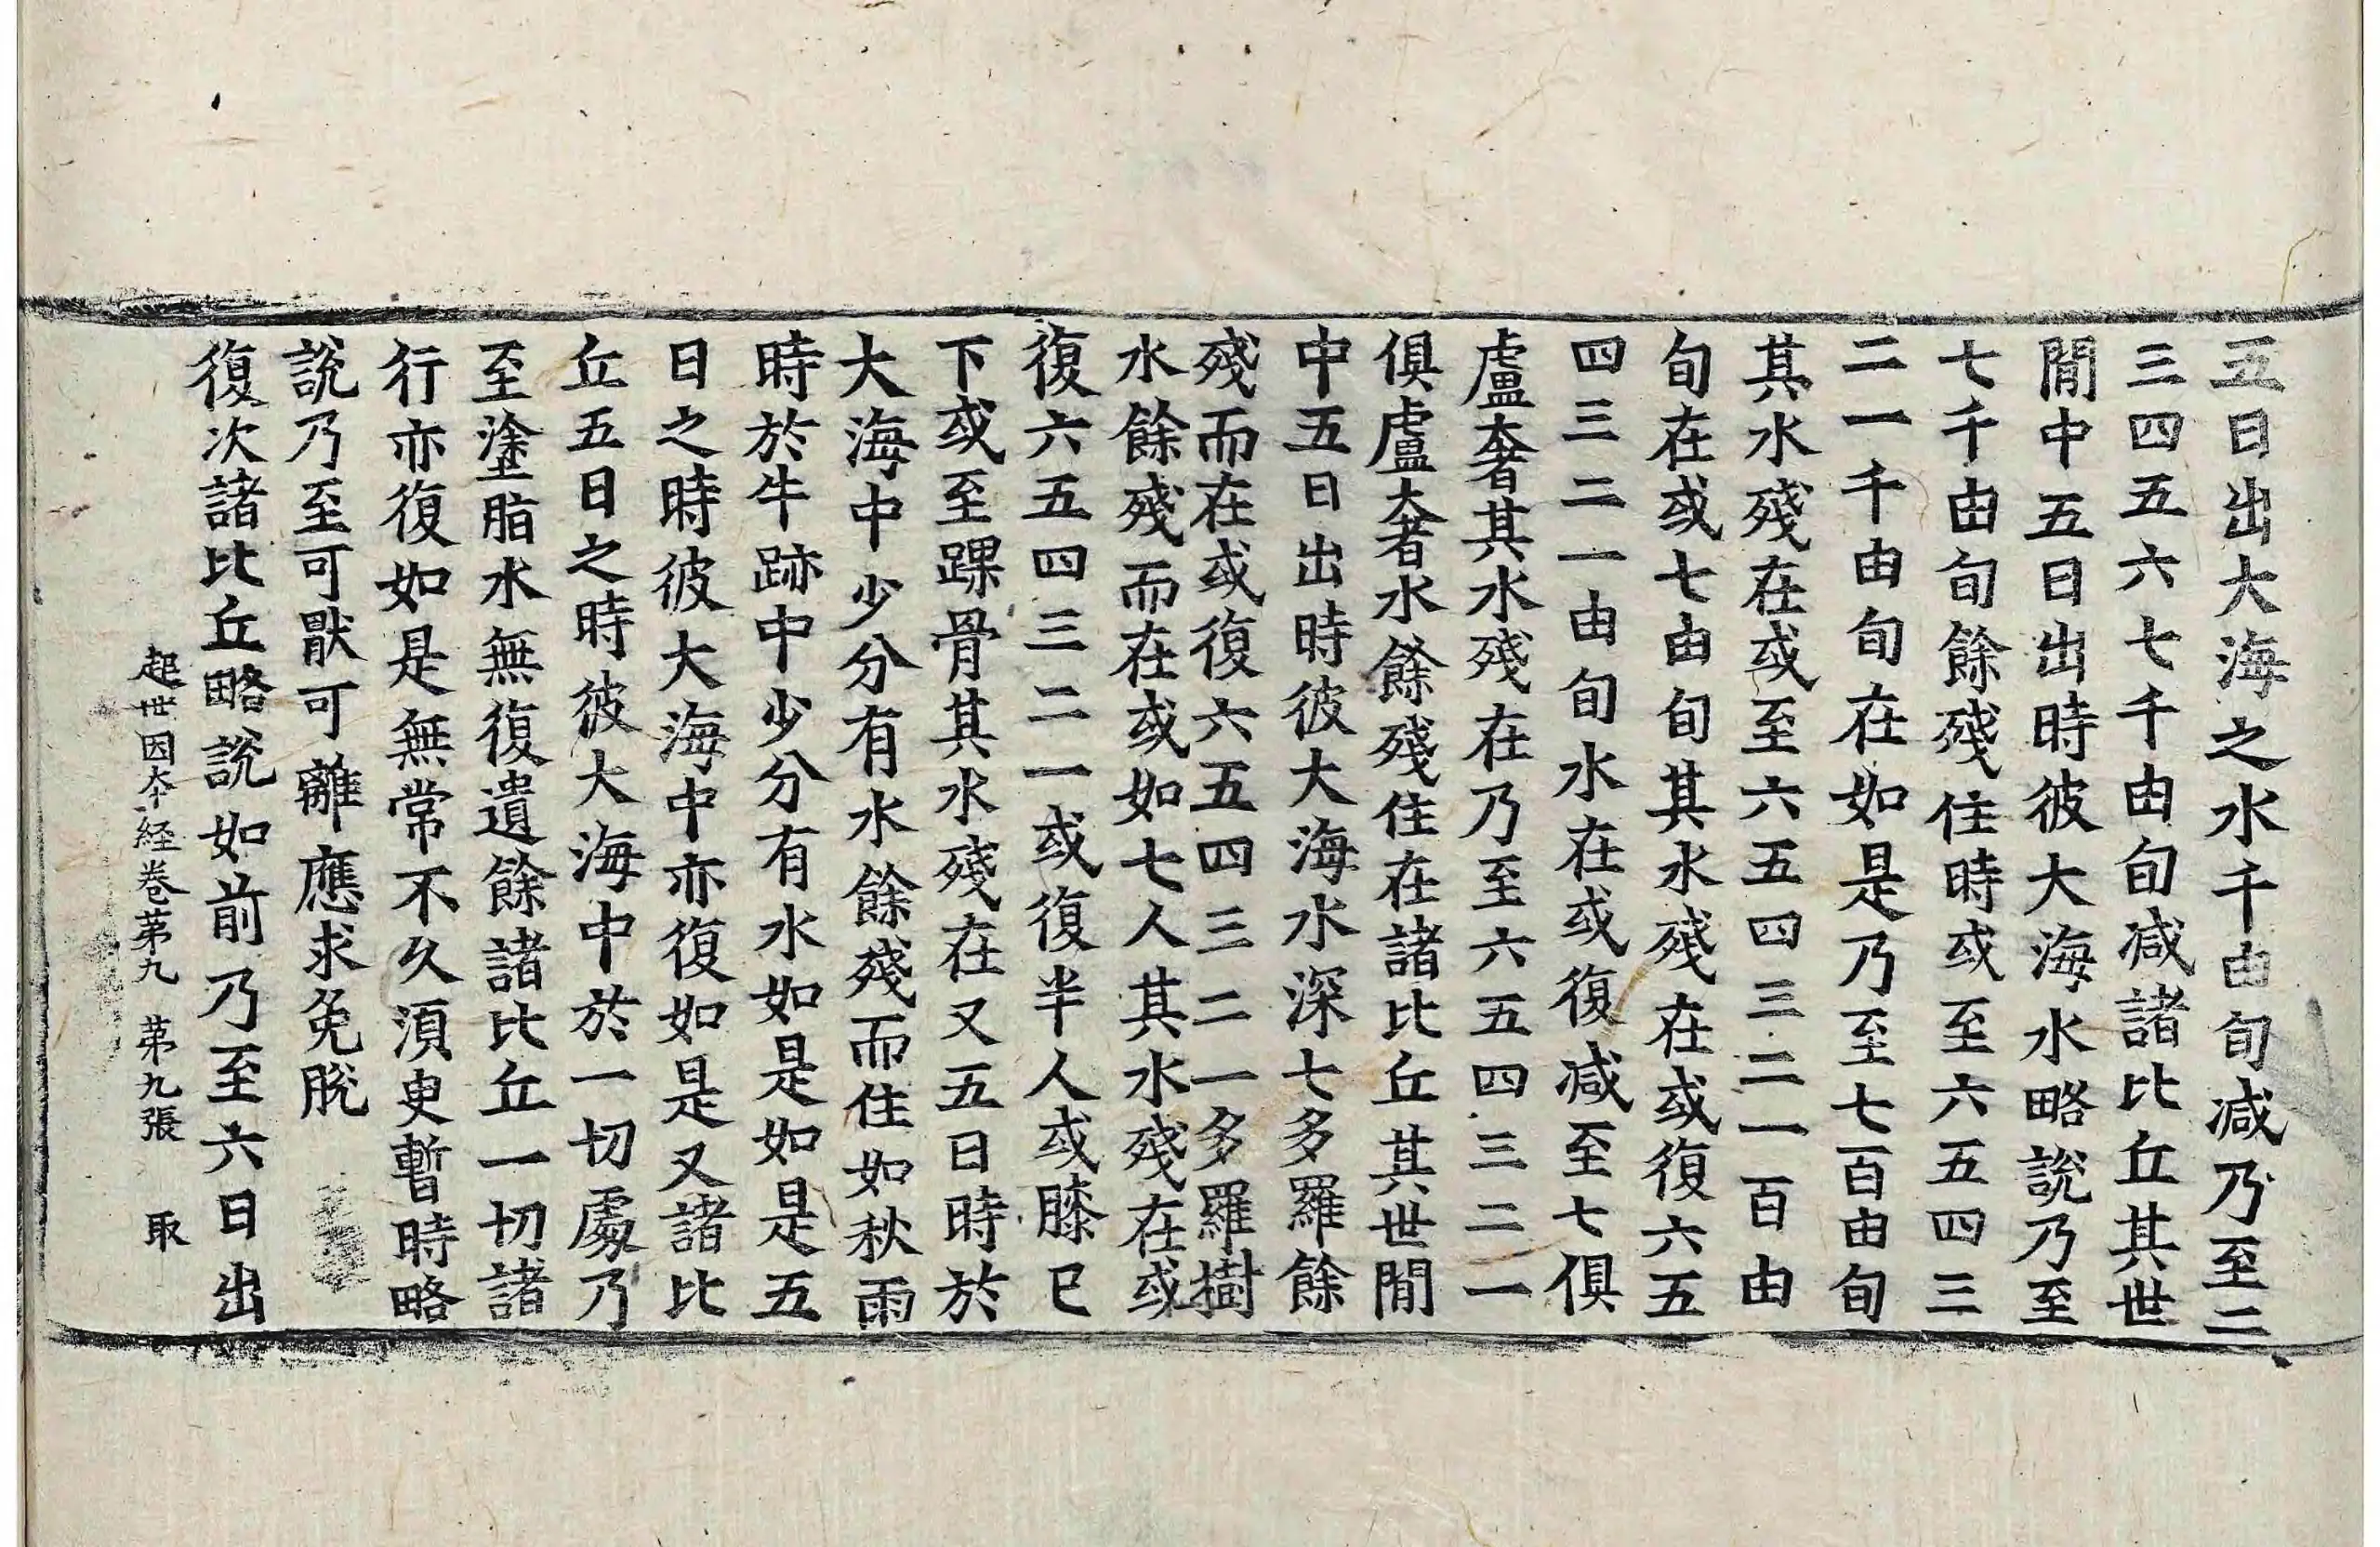 五日出大海之水千由旬減乃至二
三四五六七千由旬減諸比丘其世
閒中五日出時彼大海水略說乃至
七千由旬餘殘住時或至六五四三
二一千由旬在如是乃至七百由旬
其水殘在或至六五四三二一百由
旬在或七由旬其水殘在或復六五
四三二一由旬水在或復減至七俱
盧奢其水殘在乃至六五四三二一
俱盧奢水餘殘住在諸比丘其世閒
中五日出時彼大海水深七多羅餘
殘而在或復六五四三二一多羅樹
水餘殘而在或如七人其水殘在或
復六五四三二一或復半人或膝已
下或至踝骨其水殘在又五日時於
大海中少分有水餘殘而住如秋雨
時於牛跡中少分有水如是如是五
日之時彼大海中亦復如是又諸比
丘五日之時彼大海中於一切處乃
至塗脂水無復遺餘諸比丘一切諸
行亦復如是無常不久須臾暫時略
說乃至可猒可離應求免脫
復次諸比丘略說如前乃至六日出
起世因本経卷第九　第九張　取